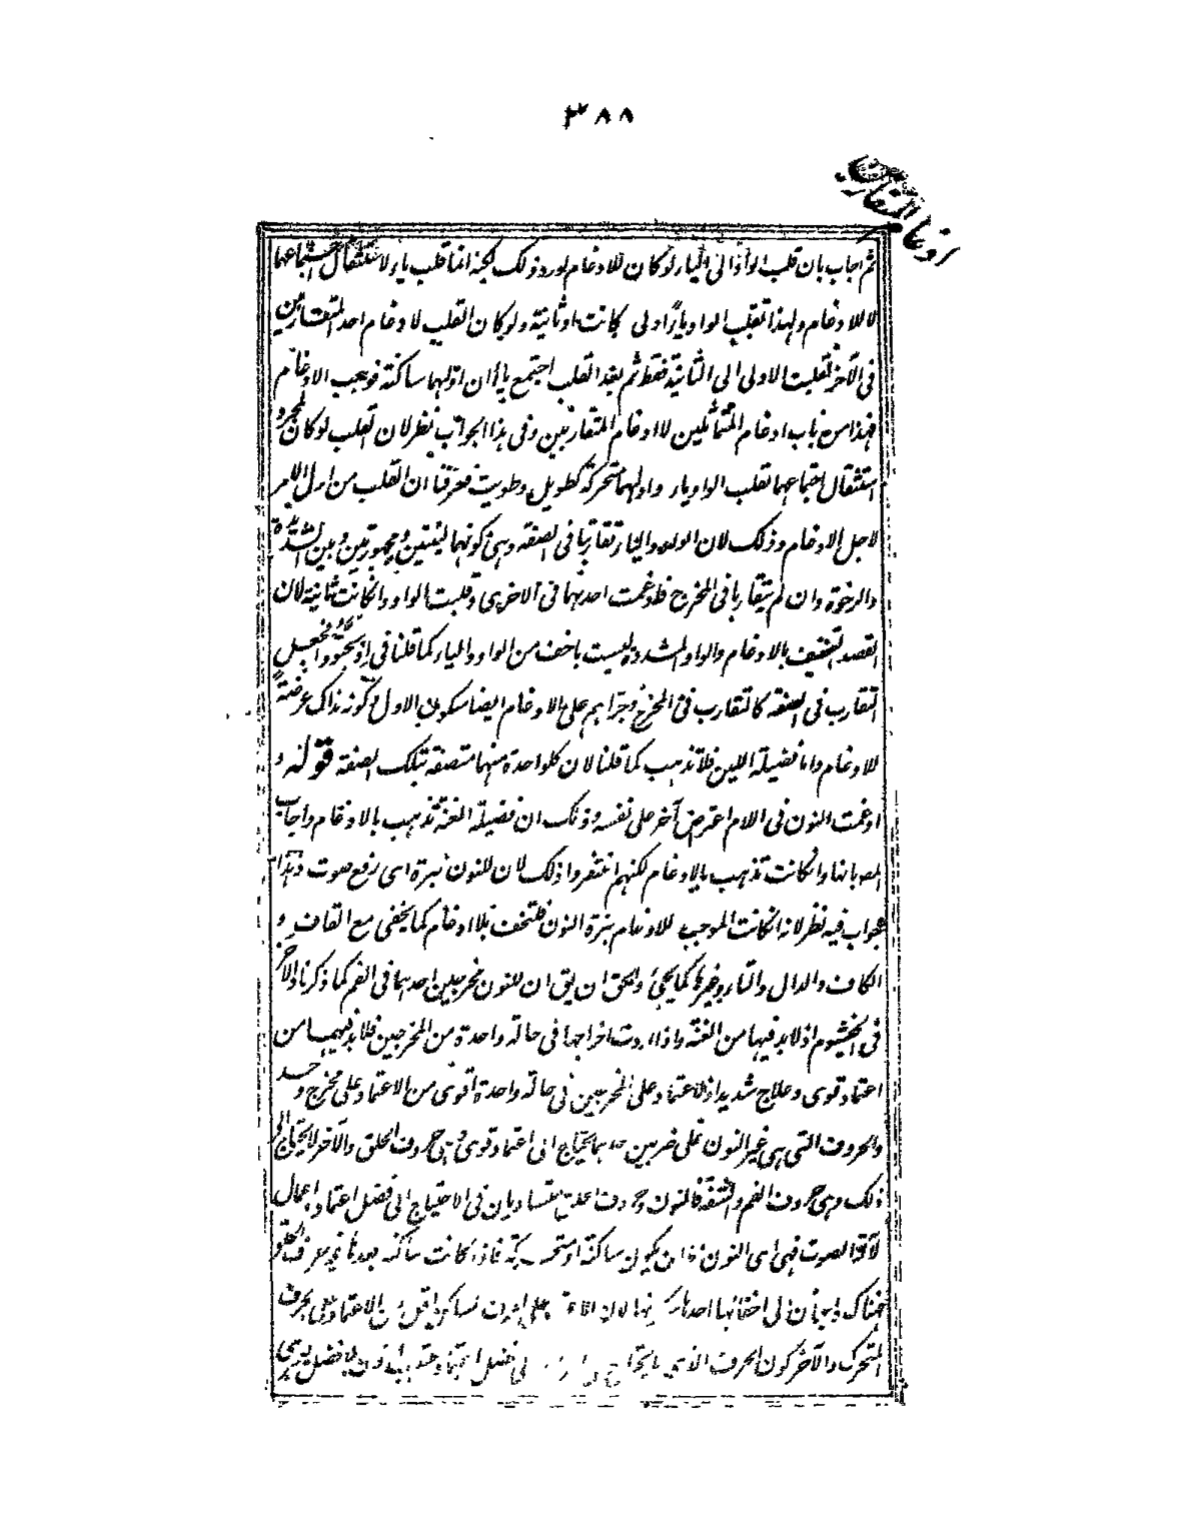 ٣٨٨
ادغام المتقاربين
ثم اجاب بان قلب الواو الى الياء لو كان للادغام لورد ذلك لكنه انما قلب ياء لاستثقال اجتماعهما
لا للادغام ولهذا تقلب الواو ياءً اولى كانت او ثانية ولو كان القلب لادغام احد المتقاربين
فى الآخر لقلبت الاولى الى الثانية فقط ثم بعد القلب اجتمع ياءان اولهما ساكنة فوجب الادغام
فهذا من باب ادغام المتماثلين لا ادغام المتقاربين وفى هذا الجواب نظر لان القلب لو كان لمجرد
استثقال اجتماعهما لقلب الواو ياء واولهما متحركة كطويل وطويت فعرفنا ان القلب من اول الامر
لاجل الادغام وذلك لان الواو والياء تقاربا فى الصفة وهى كونهما لينتين ومجهورتين وبين الشديدة
والرخوة وان لم يتقاربا فى المخرج فادغمت احدهما فى الاخرى وقلبت الواو وان كانت ثانية لان
القصد التخفيف بالادغام والواو المشددة ليست باخف من الواو والياء كما قلنا فى
التقارب فى الصفة كالتقارب فى المخرج وجرأهم على الادغام ايضا سكون الاول وكونه بذاك عرضة
للادغام واما فضيلة اللين فلا تذهب كما قلنا لان كل واحدة منهما متصفة بتلك الصفة قوله و
ادغمت النون فى اللام اعترض آخر على نفسه وذلك ان فضيلة الغنة تذهب بالادغام واجاب
المص بانها وان كانت تذهب بالادغام لكنهم اغتفروا ذلك لان للنون نبرة اى رفع صوت وهذا
جواب فيه نظر لانه ان كانت الموجب للادغام نبرة النون فلتخف بلا ادغام كما يخفى مع القاف و
الكاف والدال والتاء وغيرها كما يجئ والحق ان يق ان للنون مخرجين احدهما فى الفم كما ذكرنا والآخر
فى الخيشوم اذ لا بد فيها من الغنة واذا اردت اخراجها فى حالة واحدة من المخرجين فلا بد فيهما من
اعتماد قوى وعلاج شديد اذ الاعتماد على المخرجين فى حالة واحدة اقوى من الاعتماد على مخرج واحد
والحروف التى هى غير النون على ضربين احدهما يحتاج الى اعتماد قوى وهى حروف الحلق والآخر لا يحتاج الى
ذلك وهى حروف الفم والشفة فالنون وحروف الحلق متساويان فى الاحتياج الى فضل اعتماد واعمال
لآلة الصوت فهى اى النون اما ان يكون ساكنة او متحركة فاذا كانت ساكنة بعدها غير حرف الحلق
فهناك داعيان الى اخفائها احدهما سكونها لان الاعتماد على الحرف الساكن اقل من الاعتماد على الحرف
المتحرك والآخر كون الحرف الذى لا يحتاج الى فضل اعتماد